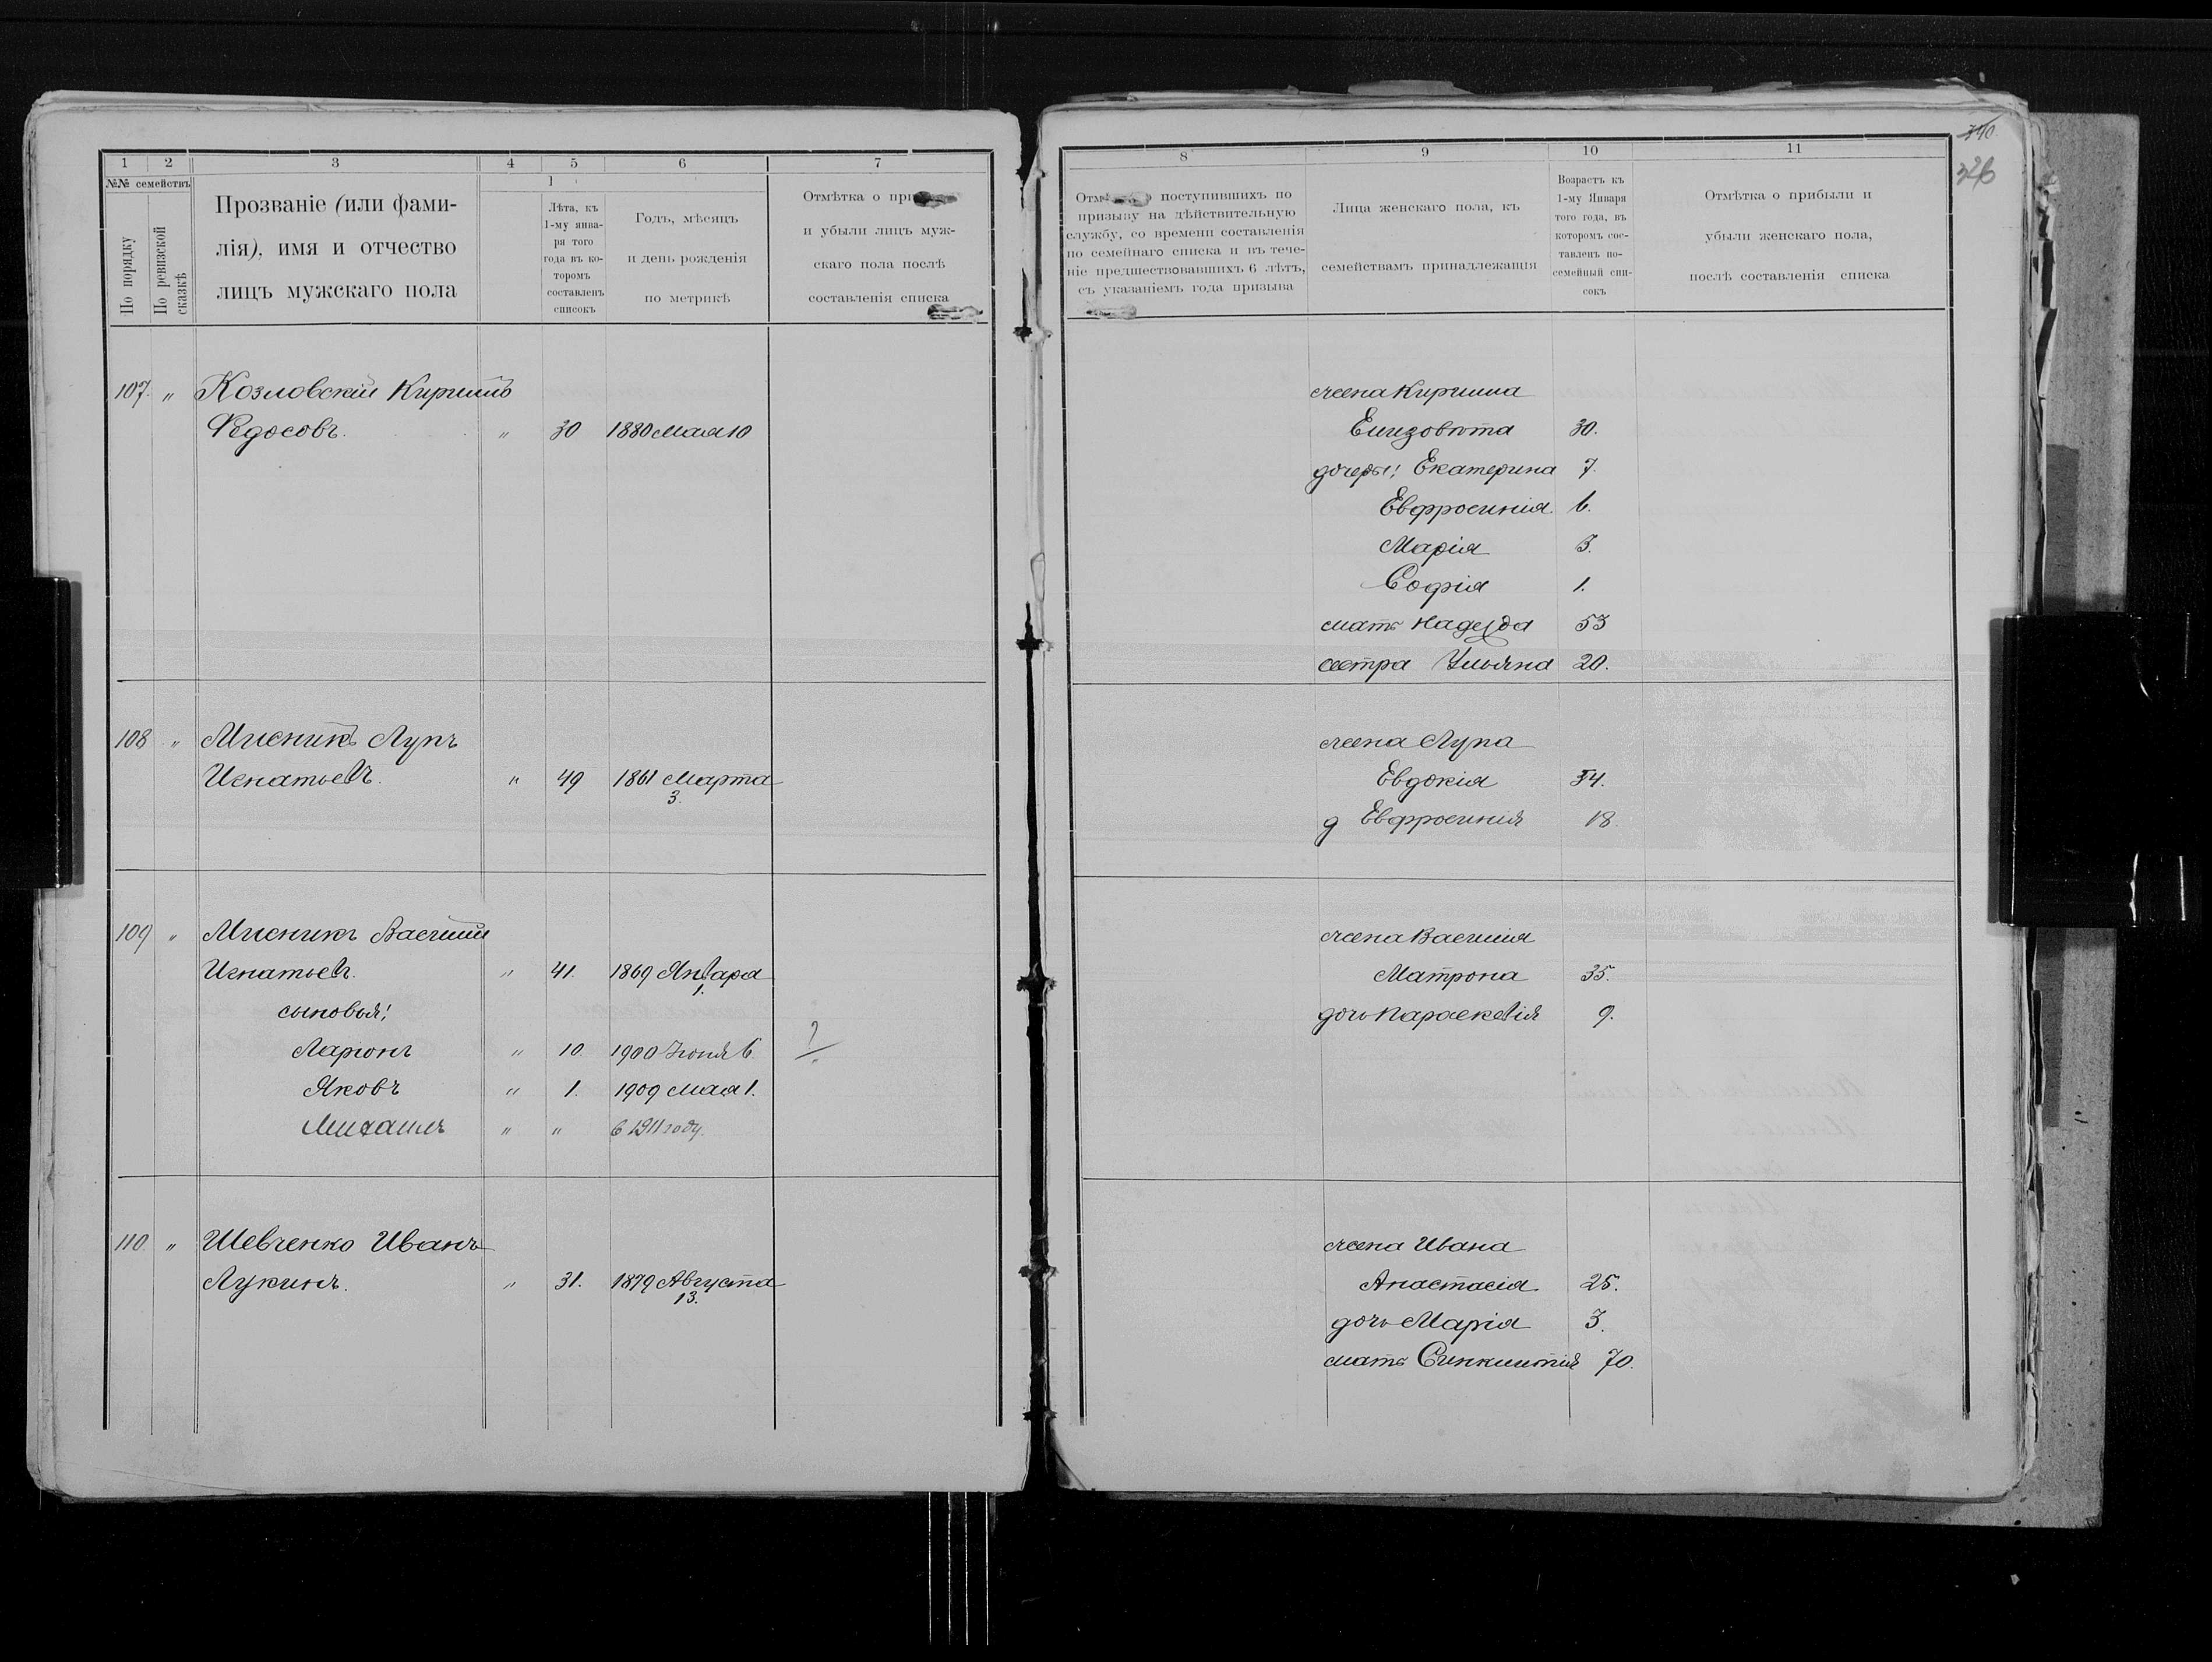 1 2 3 4 5 6 7
№№ семействъ
По порядку
По ревизской сказкѣ
Прозваніе (или фами-
лія), имя и отчество
лицъ мужскаго пола
1
Лѣта, къ
1-му янва-
ря того
года въ ко-
торомъ
составленъ
списокъ
Годъ, мѣсяцъ
и день рожденія
по метрикѣ
Отмѣтка о при
и убыли лицъ муж-
скаго пола послѣ
составленія списка
107. " Козловскій Кирилъ
Ѳедосовъ. " 30 1880 Мая 10
108 " Мисникъ Лупъ
Игнатьевъ. " 49 1861 Марта
3.
109 " Мисникъ Василій
Игнатьевъ. " 41. 1869 Января
1.
сыновья:
Ларіонъ " 10 1900 Іюня 6. ?
Яковъ " 1. 1909 Мая 1.
Михаилъ " " в 1911 году.
110 " Шевченко Иванъ
Лукинъ. " 31. 1879 Августа
13.
340.
326
8 9 10 11
Отмѣ о поступившихъ по
призыву на дѣйствительную
службу, со времени составленія
по семейнаго списка и въ тече-
ніе предшествовавшихъ 6 лѣтъ,
съ указаніемъ года призыва
Лица женскаго пола, къ
семействамъ принадлежащія
Возрастъ къ
1-му Января
того года, въ
которомъ сос-
тавленъ по-
семейный спи-
сокъ
Отмѣтка о прибыли и
убыли женскаго пола,
послѣ составленія списка
жена Кирилла
Елизовѣта 30.
дочери: Екатерина 7.
Евфросинія 6.
Марія 3.
Софія 1.
мать Надежда 53
сестра Ульяна 20.
жена Лупа
Евдокія 54.
д Евфросинія 18.
жена Василія
Матрона 35.
дочь Параскевія 9.
жена Ивана
Анастасія 25.
дочь Марія 3.
мать Синклитія 70.